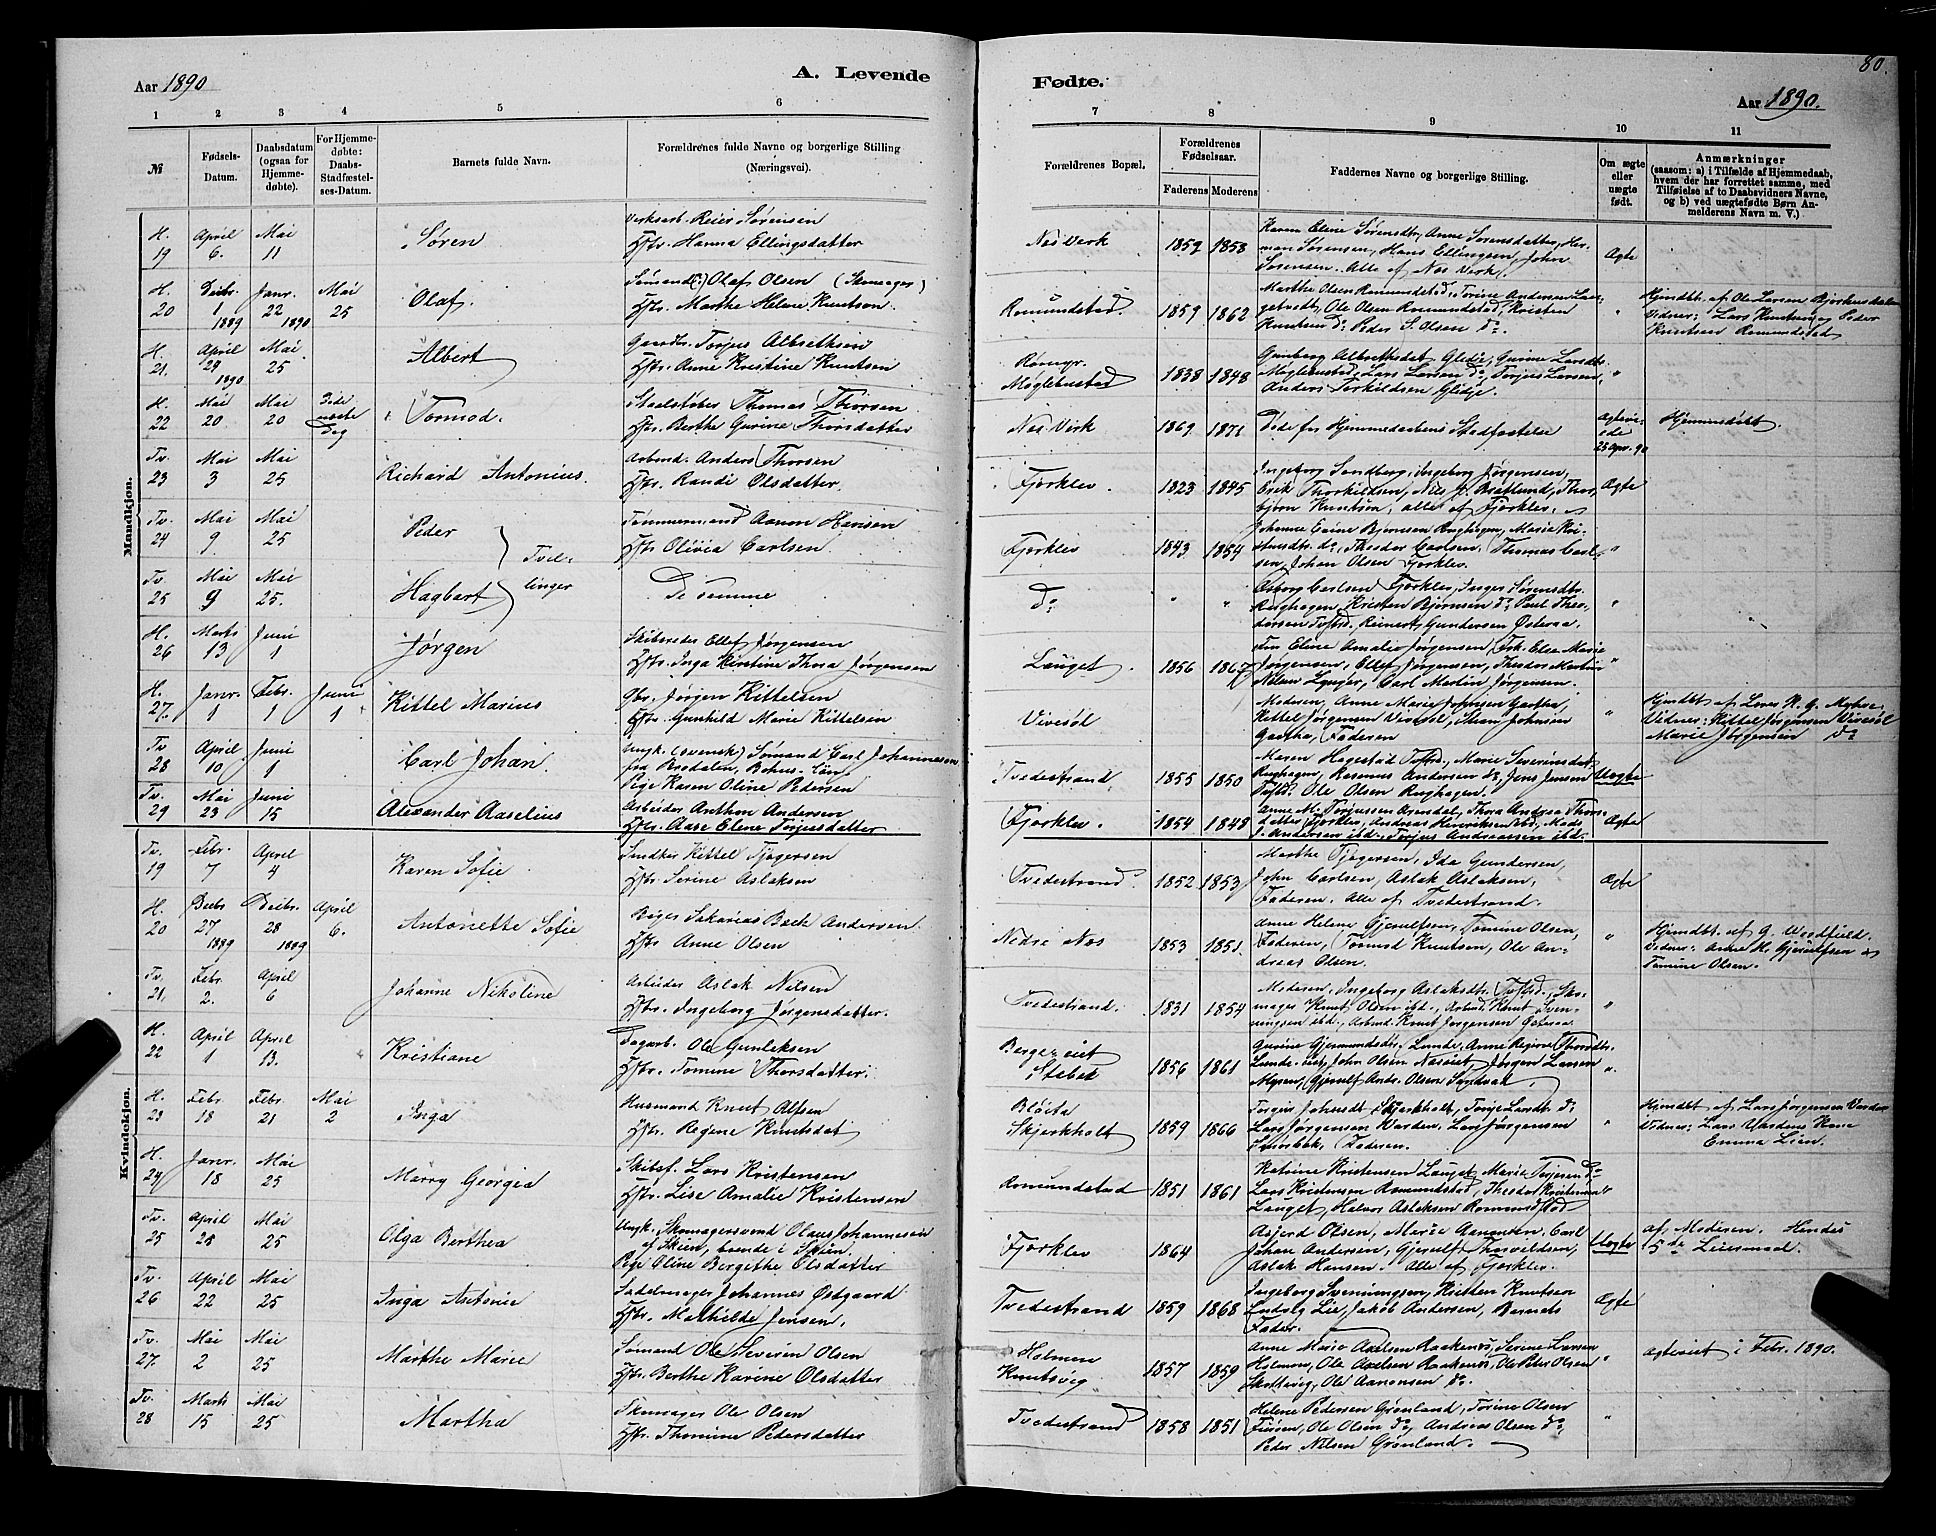 80.
Aar 1890
A. Levende
Fødte.
Aar 1890.
1 2 3 4 5 6
7 8 9 10 11
№
Fødsels-Datum.
Daabsdatum (ogsaa for Hjemmedøbte).
For Hjemmedøbte: Daabs-Stadfæstelses-Datum.
Barnets fulde Navn.
Forældrenes fulde Navne og borgerlige Stilling (Næringsvei).
Forældrenes Bopæl.
Forældrenes Fødselsaar.
Faderens Moderens
Faddernes Navne og borgerlige Stilling.
Om ægte eller uægte født.
Anmærkninger
(saasom: a) i Tilfælde af Hjemmedaab,
hvem der har forrettet samme, med
Tilføielse af to Daabsvidners Navne,
og b) ved uægtefødte Børn Anmelderens Navn m. V.)
Mandkjøn.
H. 19 April 6. Mai 11 Søren
Verksarb. Reier Sørensen
Hstr. Hanna Ellingsdatter
Nes Verk 1859 1858
Karen Eline Sørensdtr, Anne Sørensdatter, Her-
man Sørensen, Hans Ellingsen, John
Sørensen. Alle af Nes Verk
Ægte
H. 20 Decbr. 1 1889 Janr. 22 1890 Mai 25 Olaf.
Sømand Olaf Olsen
Hstr. Marthe Helene Knutsen.
Romundstad 1859 1862
Marthe Olsen Romundstad, Torine Andersen
Ole Olsen Romundstad, Kristen
Knutsen do Peder S. Olsen do
Hjmdbt. af Ole Larsen
Vidner: Lars Knutsen og Peder
Knutsen Romundstad
H. 21. April 29 1890 Mai 25 Albert
Gaardbr. Torjus Albretksen
Hstr. Anne Kristine Knutsen
Møglebustad 1838 1848
Gunborg Albrethsdat Gleде, Gurine Larsdtr.
Møglebustad, Lars Larsen do, Torjus Larsen,
Anders Torkildsen Glede.
"
H. 22 Mai 20 Mai 20 Døde næste Dag Tormod.
Thomas Thorsen
Hstr. Berthe Gurine Thorsdatter
Nes Verk 1869 1871
Døde før Hjemmedaabens Stadfæstelse
25 Apr. 90
Hjemmedøbt.
Tv. 23 Mai 3 Mai 25 Richard Antonius.
Arbmd. Anders Thorsen
Hstr. Randi Olsdatter.
Fjærklev. 1823 1845
Ingeborg Sundberg, Ingeborg Jørgensen,
Erik Thorkildsen, Nils J. Bratlund, Thor-
bjørn Knutsen, alle af Fjærklev.
Ægte
Tv. 24 Mai 9 Mai 25 Peder
Tømmermand Aanon Hansen
Hstr. Olivia Carlsen.
Fjærklev 1843 1854
Johanne Eline Bjørnsen Rughagen, Marie Kri-
stensdtr. do, Theodor Carlsen, Thomas Carl-
sen, Johan Olsen Fjærklev.
"
Tvil-
linger
Tv. 25 Mai 9 Mai 25. Hagbart
De samme
do " "
Carlsen Fjærklev, Inger Sørensdtr.
Rughagen, Kristen Bjørnsen do, Paul Theo-
dorsen Tvstrd. Reinert Gundersen Østeraa.
"
H. 26 Marts 13 Juni 1 Jørgen
Skibsreder Ellef Jørgensen
Hstr. Inga Kirstine Thora Jørgensen
Lauget. 1856 1867
Frn Eline Amalie Jørgensen, Frk. Elen Marie
Jørgensen, Ellef Jørgensen, Theodor Martin
Nilsen Lyngør, Carl Martin Jørgensen.
"
H. 27. Janr. 1 Febr. 1 Juni 1 Kittel Marius
Gbr. Jørgen Kittelsen
Hstr. Gunhild Marie Kittelsen
Vivesøl
Moderen, Anne Marie Johnsen Gartha,
Kittel Jørgensen Vivesøl, Steen Johnsen
Gartha, Faderen
"
Vidner: Kittel Jørgensen Vivesøl
Marie Jørgensen do
Tv 28 April 10 Juni 1 Carl Johan.
Ungk. (svensk) Sømand Carl Johannesen
fra Brodalen, Bohus-Län
Pige Karen Oline Pedersen
Tvedestrand 1855 1850
Maren Hagestad Tvstrd., Marie Severinsdat
Rughagen, Rasmus Andersen do, Jens Jensen
Tvstd. Ole Olsen Rughagen.
Uægte
Tv. 29 Mai 23 Juni 15 Alexander Aaselius
Arbeider Anthon Andersen
Hstr. Aase Elene Torjusdatter
Fjærklev. 1854 1848
Anne M. Torjussen Arendal, Thora Andrea Thors-
datter Fjærklev, Andreas Henriksen ibd., Mads
J. Andersen ibd., Torjus Andreassen ibd.
Ægte
Kvindekjøn.
Tv. 19 Febr. 7 April 4 Karen Sofie
Kittel Tjøgersen
Hstr. Serine Aslaksen
Tvedestrand 1852 1853
Marthe Tjøgersen, Ida Gundersen,
John Carlsen, Aslak Aslaksen,
Faderen. Alle af Tvedestrand.
Ægte
H. 20 Decbr 27 1889 Decbr. 28 1889 April 6. Antonette Sofie
Bager Sakarias Bach Andersen
Hstr. Anne Olsen
Nedre Næs 1853 1851.
Anne Helene Gjerulfsen, Tomine Olsen,
Faderen, Tormod Knutsen, Ole An-
dreas Olsen.
"
Hjmdbt. af G. Woodfield.
Vidner: Anne H. Gjerulfsen og
Tomine Olsen.
Tv. 21. Febr. 2. April 6 Johanne Nikoline
Arbeider Aslak Nilsen
Hstr. Ingeborg Jørgensdatter.
Tvedestrand. 1831 1854
Moderen, Ingeborg Aslaksdtr. Tvstrd., Sko-
mager Knut Olsen ibd., Arbmd. Knut Sven-
ningsen ibd., Arbmd. Knut Jørgensen Østeraa.
"
H. 22 April 1 April 13. Kristiane
Dagarb. Ole Gunleksen
Hstr. Tomine Thorsdatter.
Stebek 1856 1861
Gurine Gjermundsdtr. Lunde, Anne Regine Thorsdtr.
Lunde-eiet, John Olsen Næseiet, Jørgen Larsen
Myren, Gjerulf Andr. Olsen Sandvak.
"
H. 23 Febr. 18 Febr. 21 Mai 2 Inga
Husmand Knut Alfsen
Hstr. Regine Knutsdat
Skjerkholt 1859 1866
Skjerkholt, Torje Larsdtr. do
Lars Jørgensen Varden, Lars Jørgensen
Faderen.
"
Hjmdbt af Lars Jørgensen Varden
Vidner: Lars Vardens Kone
Emma Lien.
H. 24 Janr. 18 Mai 25 Marry Georgia
Skibsf. Lars Kristensen
Hstr. Lise Amalie Kristensen
Romundstad 1851 1861
Katrine Kristensen Lauget, Marie Terjesen do
Lars Kristensen Romundstad, Theodor Kristensen
Lauget, Halvor Aslaksen Romundstad
"
Tv. 25 April 28 Mai 25 Olga Berthea
Ungk. Skomagersvend Olaus Johannesen
af Skien, boende i Skien.
Pige Oline Bergithe Olsdatter
Fjærklev 1864
Asjerd Olsen, Marie Aanonsen, Carl
Johan Andersen, Gjerulf Thorvildsen,
Aslak Hansen. Alle af Fjærklev.
Uægte
af Moderen. Hendes
5te Leiermaal.
Tv. 26 April 22 Mai 25 Inga Antonie
Sadelmager Johannes Østgaard
Hstr. Mathilde Jensen.
Tvedestrand 1859 1868
Ingeborg Svenningsen, Kristen Knutsen
Lie, Jakob Andersen, Barnets
Fader.
Ægte
Tv. 27. Mai 2 Mai 25 Marthe Marie
Sømand Ole Severin Olsen
Hstr. Berthe Karine Olsdatter
Holmen Knutsvig 1857 1859
Anne Marie Axelsen Raakenes, Serine Larsen
Holmen, Ole Axelsen Raakenes, Ole Peter Olsen
Skottevig, Ole Aanonsen do.
"
Ægteviet i Febr. 1890.
Tv. 28 Marts 15 Mai 25 Martha
Skomager Ole Olsen
Hstr. Thomine Pedersdatter
Tvedestrand 1858 1851
Helene Pedersen Grønland, Torine Olsen
Furøen, Ole Olsen do, Andreas Olsen do,
Peder Nilsen Grønland.
"